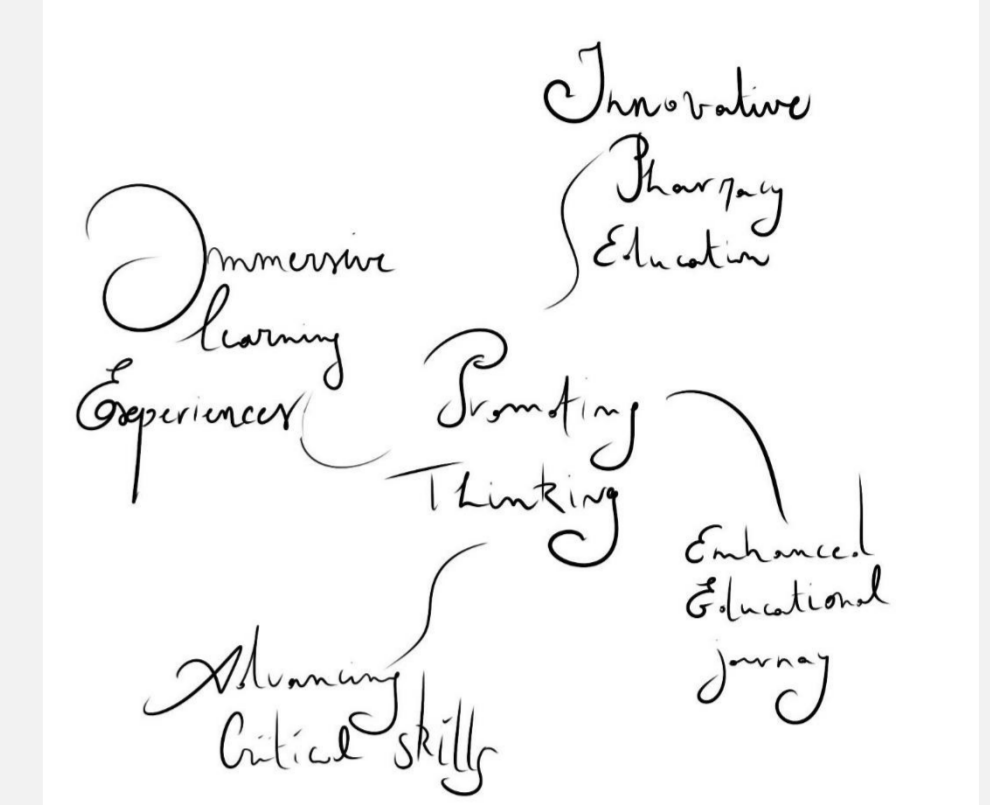 Innovative
Pharmacy
Education
Immersive
learning
Experiences
Promoting
Thinking
Enhanced
Educational
journay
Advancing
Critical skills